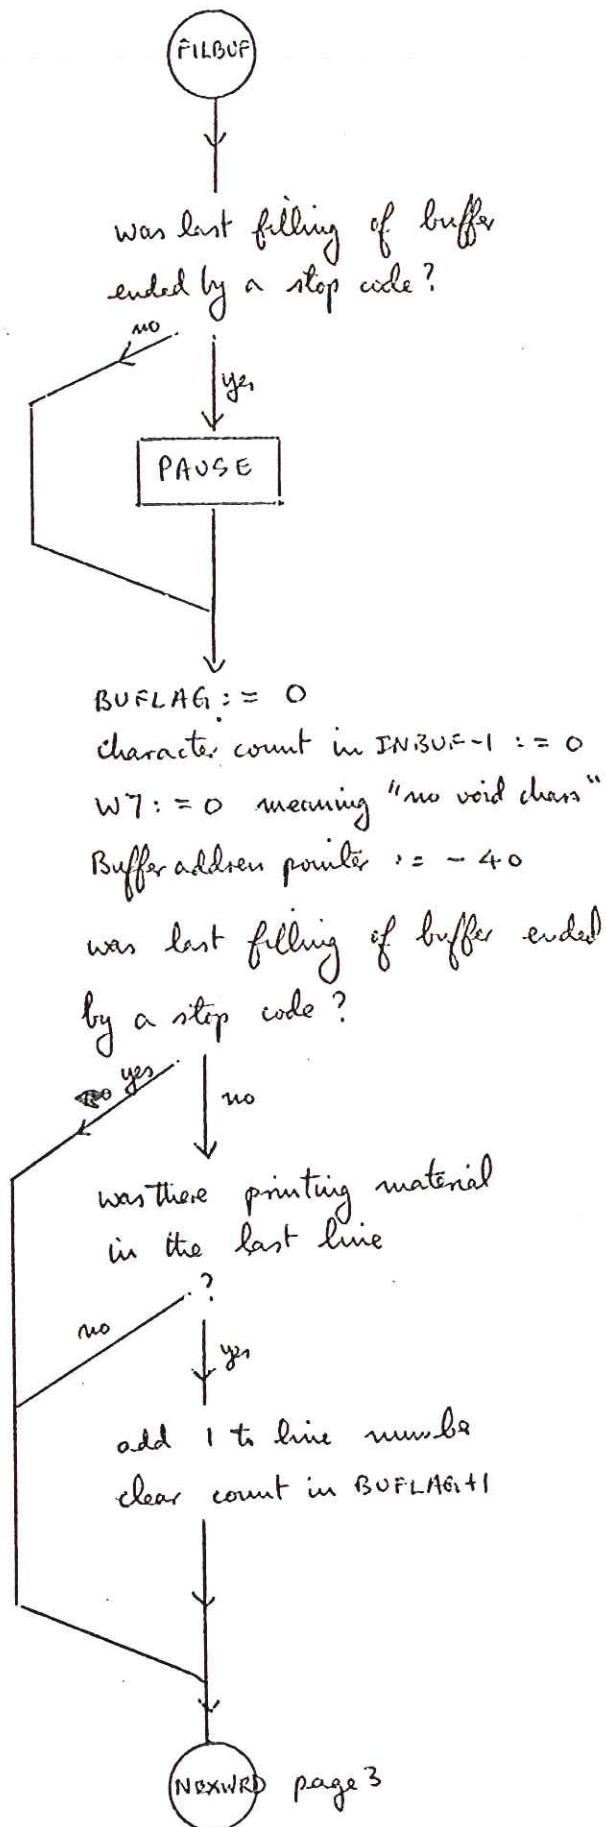 FILBUF
was last filling of buffer
ended by a stop code?
no
yes
PAUSE
BUFLAG := 0
character count in INBUF-1 := 0
W7 := 0 meaning "no void chars"
Buffer address pointer := -40
was last filling of buffer ended
by a stop code?
yes
no
was there printing material
in the last line
?
no
yes
add 1 to line number
clear count in BUFLAG+1
NEXWRD page 3